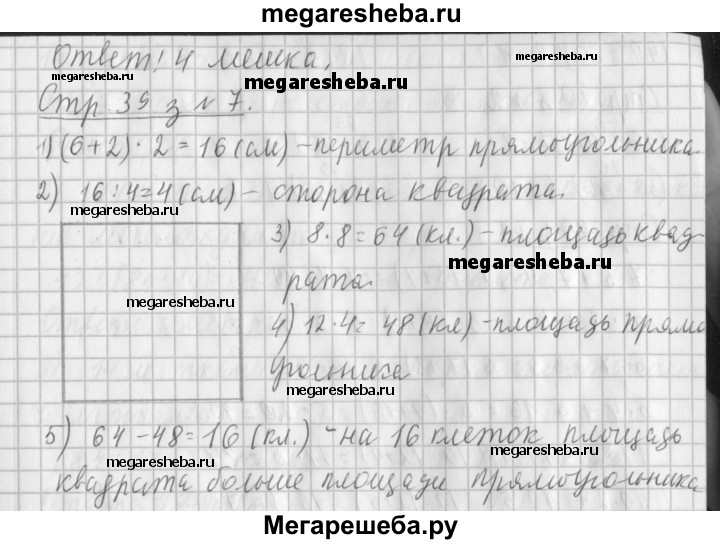 megaresheba.ru
Ответ! 4 мешка.
megaresheba.ru
megaresheba.ru
megaresheba.ru
Стр 39 з № 7.
1) (6+2) · 2 = 16 (см) - периметр прямоугольника
2) 16 : 4 = 4 (см) - сторона квадрата.
megaresheba.ru
3) 8 · 8 = 64 (кл.) - площадь квад-
рата.
megaresheba.ru
megaresheba.ru
4) 12 · 4 = 48 (кл) - площадь прямо
угольника
megaresheba.ru
5) 64 - 48 = 16 (кл.) - на 16 клеток площадь
megaresheba.ru
megaresheba.ru
квадрата больше площади прямоугольника
Мегарешеба.ру